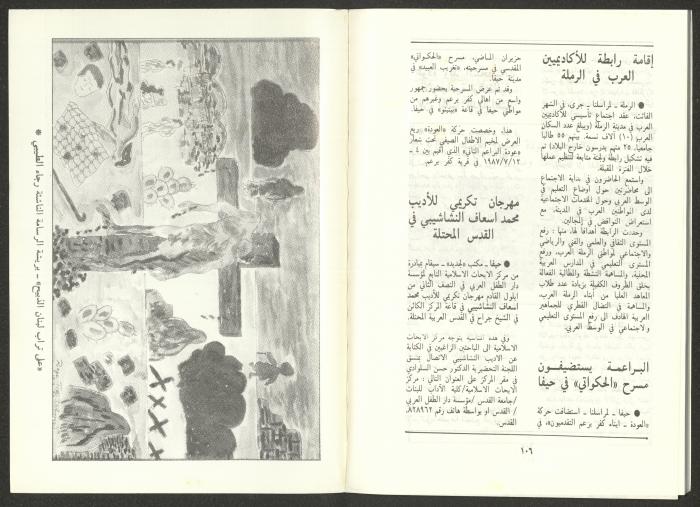 إقامة رابطة للأكاديميين
العرب في الرملة
● الرملة ـ لمراسلنا ـ جرى، في الشهر
الفائت، عقد اجتماع تأسيسي للأكاديميين
العرب في مدينة الرملة (ويبلغ عدد السكان
العرب (١٠) آلاف نسمة. بينهم ٥٥ طالبا
جامعيا، ٢٥ منهم يدرسون خارج البلاد) تم
فيه تشكيل رابطة ولجنة متابعة لتنظيم عملها
خلال الفترة المقبلة.
واستمع الحاضرون في بداية الاجتماع
الى محاضرتين حول اوضاع التعليم في
الوسط العربي وحول الخدمات الاجتماعية
لدى المواطنين العرب في المدينة، مع
استعراض النواقص في المجالين.
وحددت الرابطة أهدافا لها، منها : رفع
المستوى الثقافي والعلمي والفني والرياضي
والاجتماعي لمواطني الرملة العرب، ورفع
المستوى التعليمي في المدارس العربية
المحلية، والمساهمة النشطة والمطالبة الفعالة
بخلق الظروف الكفيلة بزيادة عدد طلاب
المعاهد العليا من أبناء الرملة العرب،
والمساهمة في النضال القطري للجماهير
العربية الهادف الى رفع المستوى التعليمي
والاجتماعي في الوسط العربي.
البراعمة يستضيفون
مسرح «الحكواتي» في حيفا
● حيفا ـ لمراسلنا ـ استضافت حركة
«العودة ـ ابناء كفر برعم التقدميون»، في
حزيران الماضي، مسرح «الحكواتي»
المقدسي في مسرحيته، «تغريب العبيد» في
مدينة حيفا.
وقد تم عرض المسرحية بحضور جمهور
واسع من اهالي كفر برعم وغيرهم من
مواطني حيفا في قاعة «بيتينو» في حيفا.
هذا، وخصصت حركة «العودة» ريع
العرض لمخيم الاطفال الصيفي تحت شعار
«عودة البراعم الثاني» الذي أقيم بين ٤ ـ
١٩٨٧/٧/١٢ في قرية كفر برعم.
مهرجان تكريمي للأديب
محمد اسعاف النشاشيبي في
القدس المحتلة
● حيفا ـ مكتب «الجديد» ـ سيقام بمبادرة
من مركز الابحاث الاسلامية التابع لمؤسسة
دار الطفل العربي في النصف الثاني من
ايلول القادم مهرجان تكريمي للأديب محمد
اسعاف النشاشيبي في قاعة المركز الكائن
في الشيخ جراح في القدس العربية المحتلة.
وفي هذه المناسبة يتوجه مركز الابحاث
الاسلامية الى الباحثين الراغبين في الكتابة
عن الاديب النشاشيبي الاتصال بمنسق
اللجنة التحضيرية الدكتور حسن السلوادي
في مقر المركز على العنوان التالي : مركز
الابحاث الاسلامية/كلية الآداب للبنات
/جامعة القدس /مؤسسة دار الطفل العربي
/ القدس. او بواسطة هاتف رقم ٨٢٨٩٦٢،
القدس.
١٠٦
«على تراب لبنان الذبيح» ـ بريشة الرسامة الناشئة رجاء الطيبي *